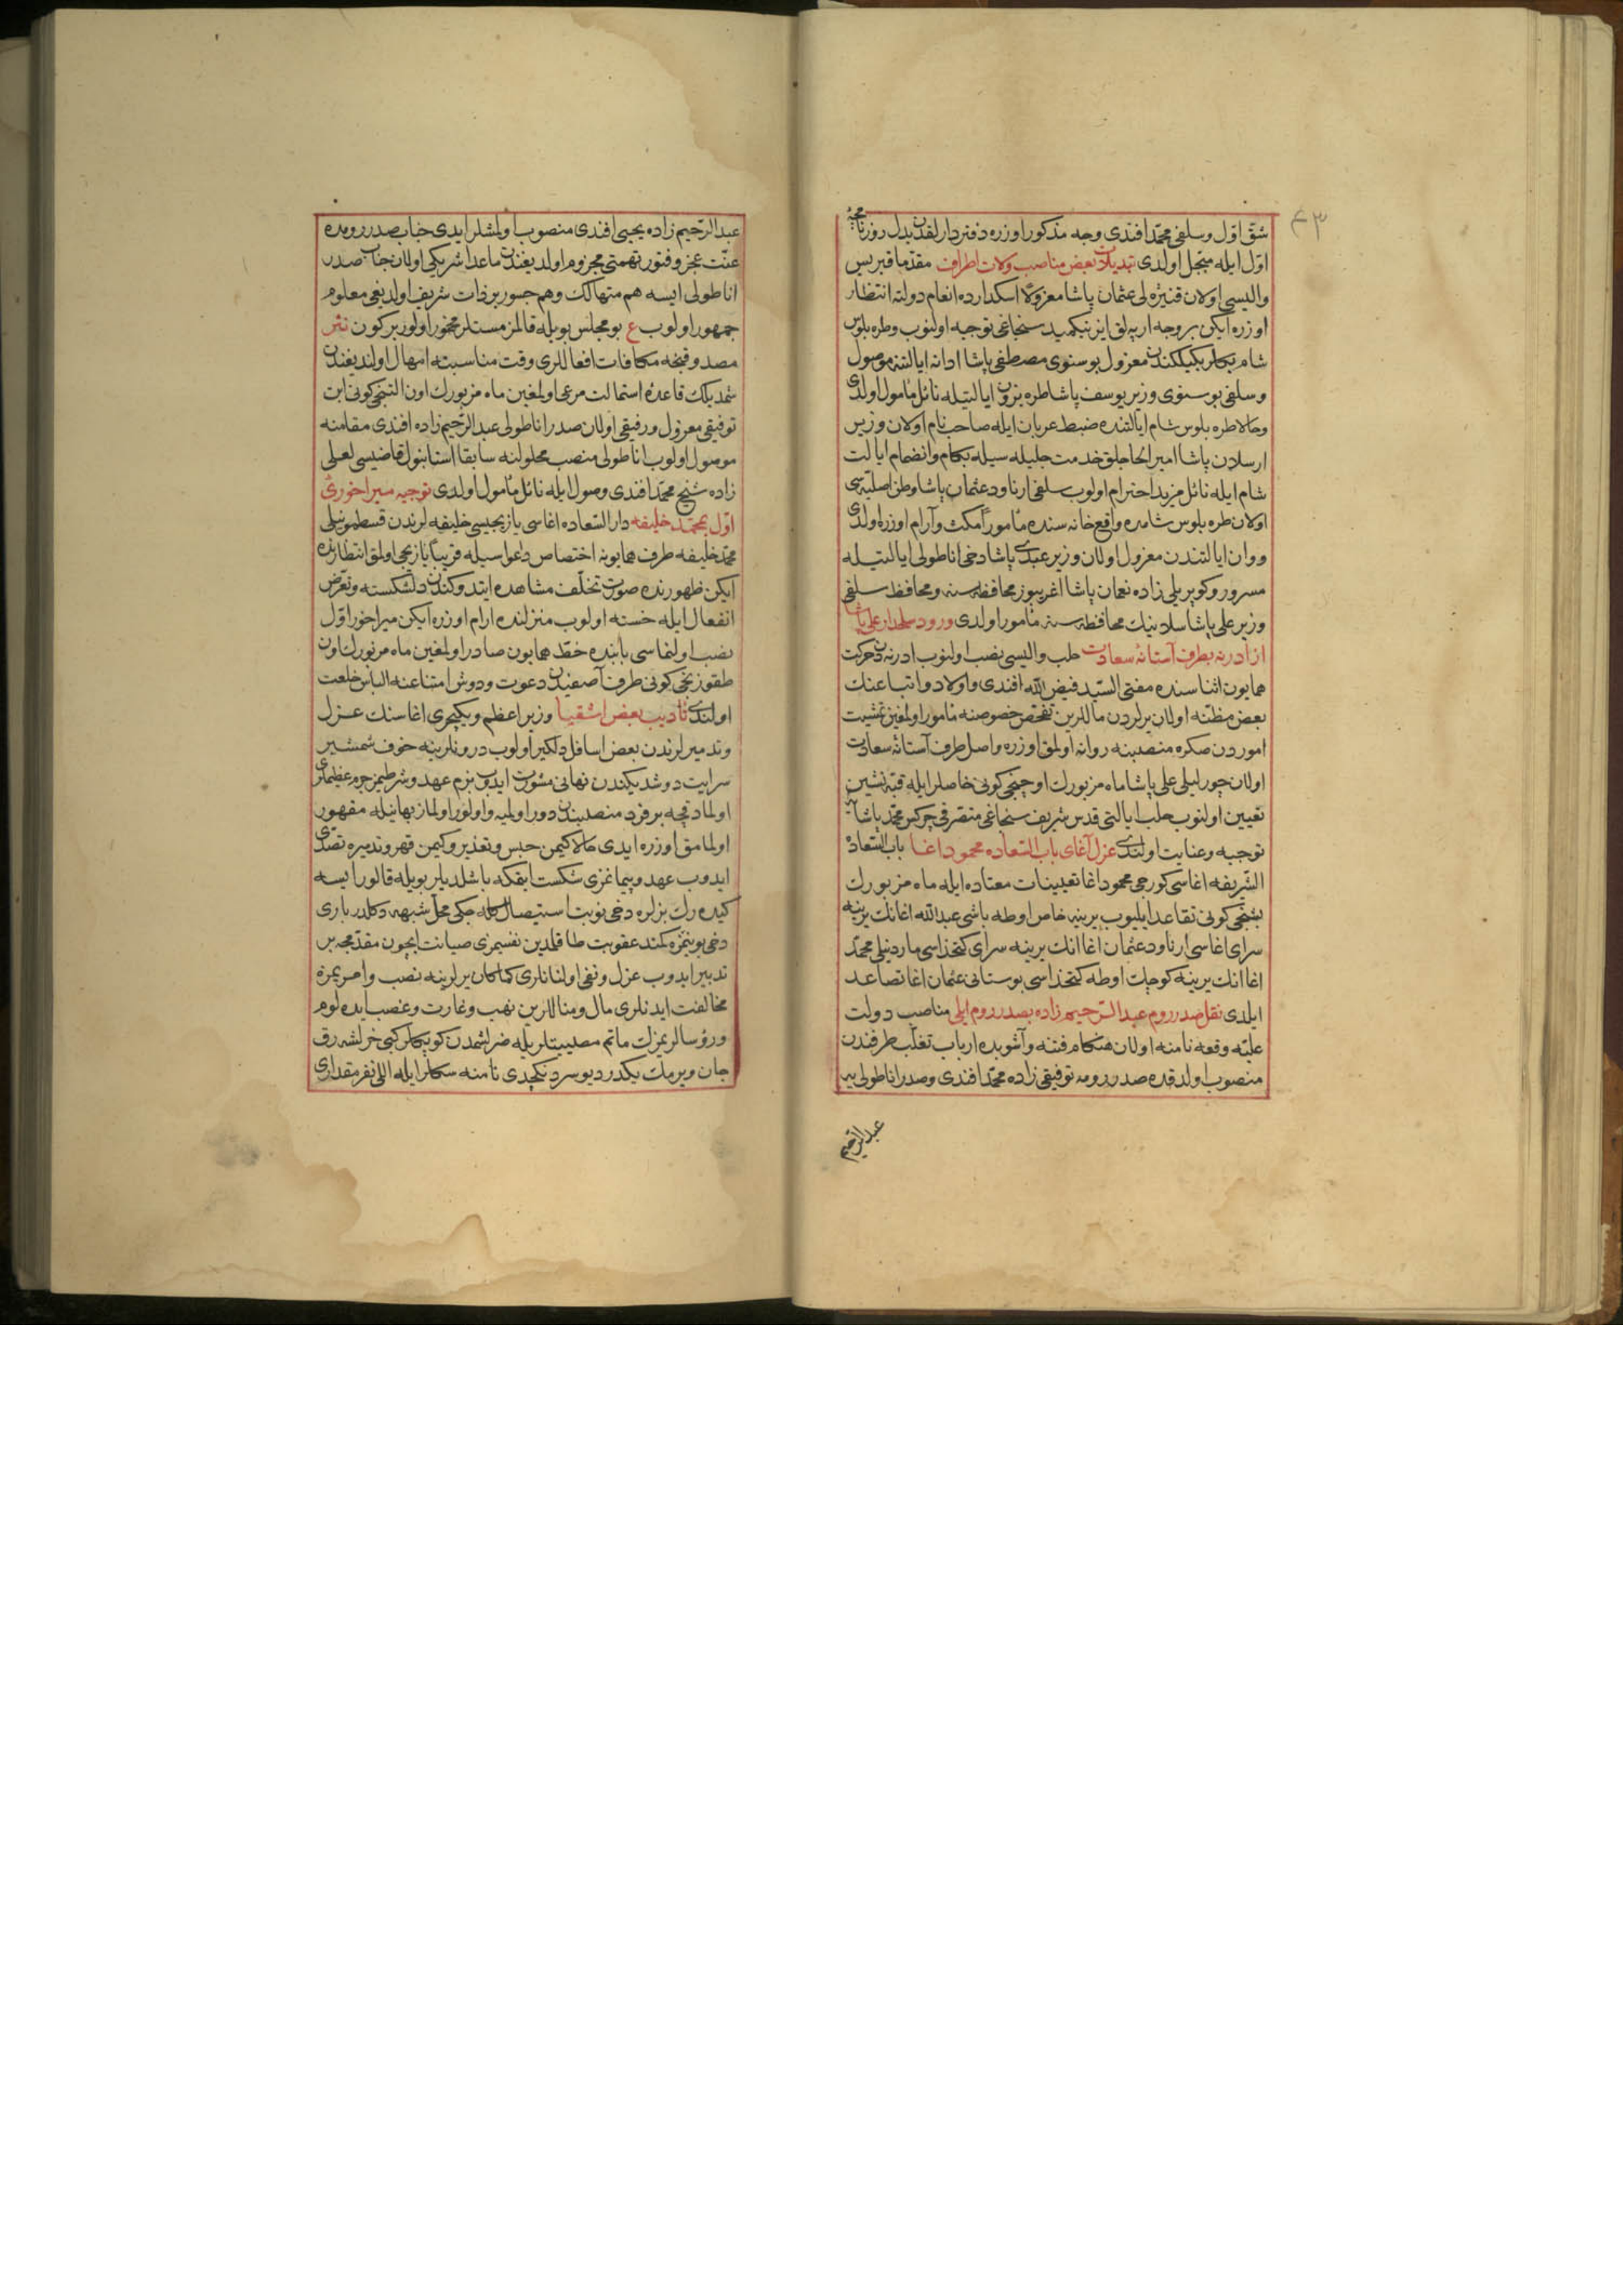 ۴۳
شق اول و سلفی محمد افندی وجه مذکور اوزره دفتردارلقدن بدل روزنامچهٔ
اول ایله مبجل اولدی تبدیلات بعض مناصب ولات اطراف مقدما قبریس
والیسی اولان قنیژه لی عثمان پاشا معزولا اسکدارده انعام دولته انتظار
اوزره ایکن بر وجه ارپه لق ایزنیکمید سنجاغی توجیه اولنوب وطره بلوس
شام بکلربکیلکندن معزول بوسنوی مصطفی پاشا ادانه ایالتنه موصول
و سلفی بوسنوی وزیر یوسف پاشا طره بزون ایالتیله نائل مأمول اولدی
وحالا طره بلوس شام ایالتنده ضبط عربان ایله صاحب نام اولان وزیر
ارسلان پاشا امیر الحاجلق خدمت جلیله سیله بکام وانضمام ایالت
شام ایله نائل مزید احترام اولوب سلفی ارناود عثمان پاشا وطن اصلیه سی
اولان طره بلوس شامده واقع خانه سنده مأمورا مکث وآرام اوزره اولدی
ووان ایالتندن معزول اولان وزیر عبدی پاشا دخی اناطولی ایالتیله
مسرور وکوپریلی زاده نعمان پاشا اغریبوز محافظه سنه ومحافظ سلفی
وزیر علی پاشا سلانیك محافظه سنه مأمور اولدی ورود سلحدار علی پاشا
از ادرنه بطرف آستانهٔ سعادت حلب والیسی نصب اولنوب ادرنه دن حرکت
همایون اثناسنده مفتی السید فیض الله افندی واولاد واتباعنك
بعض مظنه اولان یرلردن ماللرین تفحص خصوصنه مأمور اولمغین تمشیت
اموردن صکره منصبنه روانه اولمق اوزره واصل طرف آستانهٔ سعادت
اولان چورلیلی علی پاشا ماه مزبورك اوچنجی کونی خاصلر ایله قبه نشین
تعیین اولنوب حلب ایالتی قدس شریف سنجاغی متصرفی چرکس محمد پاشایه
توجیه وعنایت اولندی عزل آغای باب السعاده محمود اغا باب السعادة
الشریفه اغاسی کورجی محمود اغا تعیینات معتاده ایله ماه مزبورك
بشنجی کونی تقاعد ایلیوب یرینه خاص اوطه باشی عبد الله اغا انك یرینه
سرای اغاسی ارناود عثمان اغا انك یرینه سرای کتخداسی ماردینلی محمد
اغا انك یرینه کوچك اوطه کتخداسی بوستانی عثمان اغا تصاعد
ایلدی نقل صدر روم عبد الرحیم زاده بصدر روم ایلی مناصب دولت
علیه وقعه نامنه اولان هنکام فتنه وآشوبده ارباب تغلب طرفندن
منصوب اولدقده صدر رومه توفیقی زاده محمد افندی وصدر اناطولی یه
عبد الرحیم
عبد الرحیم زاده یحیی افندی منصوب اولمشلر ایدی جناب صدر رومده
عنت عجز وفتور تهمتی مجزوم اولدیغندن ماعدا شریکی اولان جناب صدر
اناطولی ایسه هم متهالك وهم جسور بر ذات شریف اولدیغی معلوم
جمهور اولوب ع بو مجلس بویله قالمز مستلر مخمور اولور بر کون نثر
مصدوقنجه مکافات افعاللری وقت مناسبته امهال اولندیغندن
شمدیلك قاعدهٔ استمالت مرعی اولمغین ماه مزبورك اون التنجی کونی ابن
توفیقی معزول ورفیقی اولان صدر اناطولی عبد الرحیم زاده افندی مقامنه
موصول اولوب اناطولی منصب محلولنه سابقا استانبول قاضیسی لعلی
زاده شیخ محمد افندی وصول ایله نائل مأمول اولدی توجیه میراخورئ
اول بمحمد خلیفه دار السعاده اغاسی یازیجیسی خلیفه لرندن قسطمونیلی
محمد خلیفه طرف همایونه اختصاص دعواسیله قریبا یازیجی اولمق انتظارنده
ایکن ظهورنده صورت تخلف مشاهده ایتدوکندن دلشکسته وتعرض
انفعال ایله خسته اولوب منزلنده ارام اوزره ایکن میراخور اول
نصب اولنماسی بابنده خط همایون صادر اولمغین ماه مزبورك اون
طقوزنجی کونی طرف آصفیدن دعوت ودوش امتناعنه الباس خلعت
اولندی تأدیب بعض اشقیا وزیر اعظم ویکیچری اغاسنك عزل
وتدمیرلرندن بعض اسافل دلکیر اولوب درونلرینه خوف شمشیر
سرایت دوشدیکندن نهانی مشورت ایدوب بزم عهد وشرطیمز جرم عظیملری
اولمادقچه بر فرد منصبندن دور اولمیه واولور اولماز بهانیله مقهور
اولمامق اوزره ایدی حالا کیمن حبس وتعذیر وکیمن قهر وتدمیره تصدی
ایدوب عهد وپیمانمزی شکست ایتمکه باشلدیلر بویله قالور ایسه
کیده رك بزلره دخی نوبت استیصال کله جکی محل شبهه دکلدر باری
دخی بوینمزه کمند عقوبت طاقلمدین نفسیمزی صیانت ایچون مقدمجه بر
تدبیر ایدوب عزل ونفی اولنانلری کماکان یرلرینه نصب وامریمزه
مخالفت ایدنلری مال ومناللرین نهب وغارت وغصب ایده لوم
ورؤسالریمزك ماتم مصیبتلریله ضرلشمدن کوپکلر کبی خرلشه رق
جان ویرمك یکدر دیو سردنکچدی نامنه سکلر ایله اللی نفر مقداری